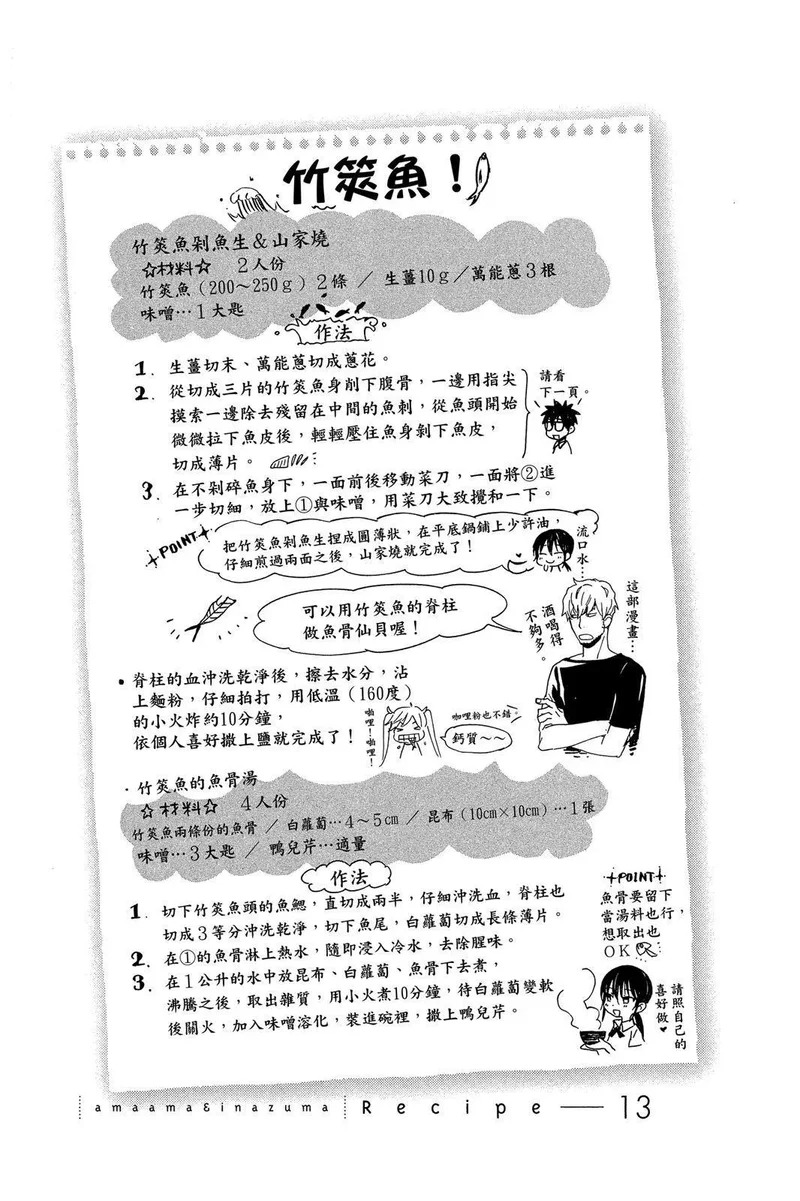 竹筴魚！
竹筴魚剁魚生＆山家燒
☆材料☆　２人份
竹筴魚（200～250ｇ）２條 ／ 生薑10ｇ／萬能蔥３根
味噌…１大匙
作法
1. 生薑切末、萬能蔥切成蔥花。
2. 從切成三片的竹筴魚身削下腹骨，一邊用指尖
摸索一邊除去殘留在中間的魚刺，從魚頭開始
微微拉下魚皮後，輕輕壓住魚身剝下魚皮，
切成薄片。
請看
下一頁。
3. 在不剁碎魚身下，一面前後移動菜刀，一面將②進
一步切細，放上①與味噌，用菜刀大致攪和一下。
POINT
把竹筴魚剁魚生捏成圓薄狀，在平底鍋鋪上少許油，
仔細煎過兩面之後，山家燒就完成了！
流口水…
可以用竹筴魚的脊柱
做魚骨仙貝喔！
這部漫畫…
酒喝得
不夠多。
• 脊柱的血沖洗乾淨後，擦去水分，沾
上麵粉，仔細拍打，用低溫（160度）
的小火炸約10分鐘，
依個人喜好撒上鹽就完成了！
啪哩！啪哩！
咖哩粉也不錯。
鈣質～～
・竹筴魚的魚骨湯
☆材料☆　４人份
竹筴魚兩條份的魚骨 ／ 白蘿蔔…４～５㎝ ／ 昆布（10㎝×10㎝）…１張
味噌…３大匙 ／ 鴨兒芹…適量
作法
1. 切下竹筴魚頭的魚鰓，直切成兩半，仔細沖洗血，脊柱也
切成３等分沖洗乾淨，切下魚尾，白蘿蔔切成長條薄片。
2. 在①的魚骨淋上熱水，隨即浸入冷水，去除腥味。
3. 在１公升的水中放昆布、白蘿蔔、魚骨下去煮，
沸騰之後，取出雜質，用小火煮10分鐘，待白蘿蔔變軟
後關火，加入味噌溶化，裝進碗裡，撒上鴨兒芹。
POINT
魚骨要留下
當湯料也行，
想取出也
ＯＫ
請照自己的
喜好做♥
amaama&inazuma Recipe — 13